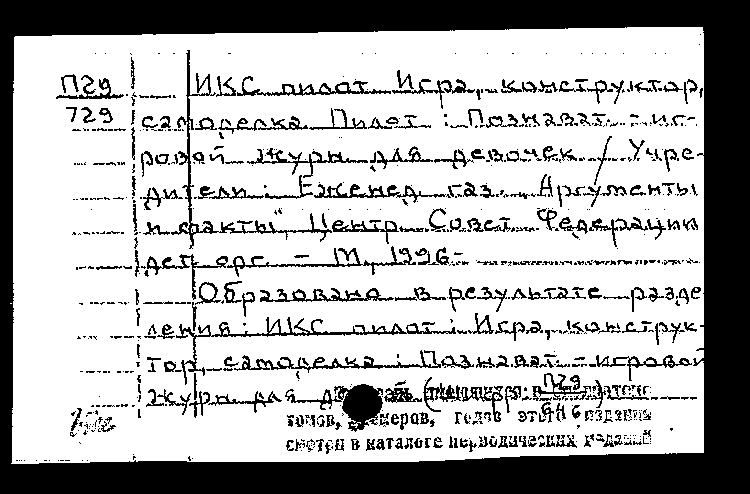 П29
729
ИКС пилот. Игра, конструктор,
самоделка. Пилот : Познават. - иг-
ровой журн. для девочек / Учре-
дители: Еженед. газ. "Аргументы
и факты", Центр. Совет Федерации
дет. орг. - М., 1996-
Образовано в результате разде-
ления: ИКС пилот: Игра, конструк-
тор, самоделка : Познават. - игровой
журн. для (шифр: П29
646)
томов, номеров, годов этого издания
смотри в каталоге периодических изданий